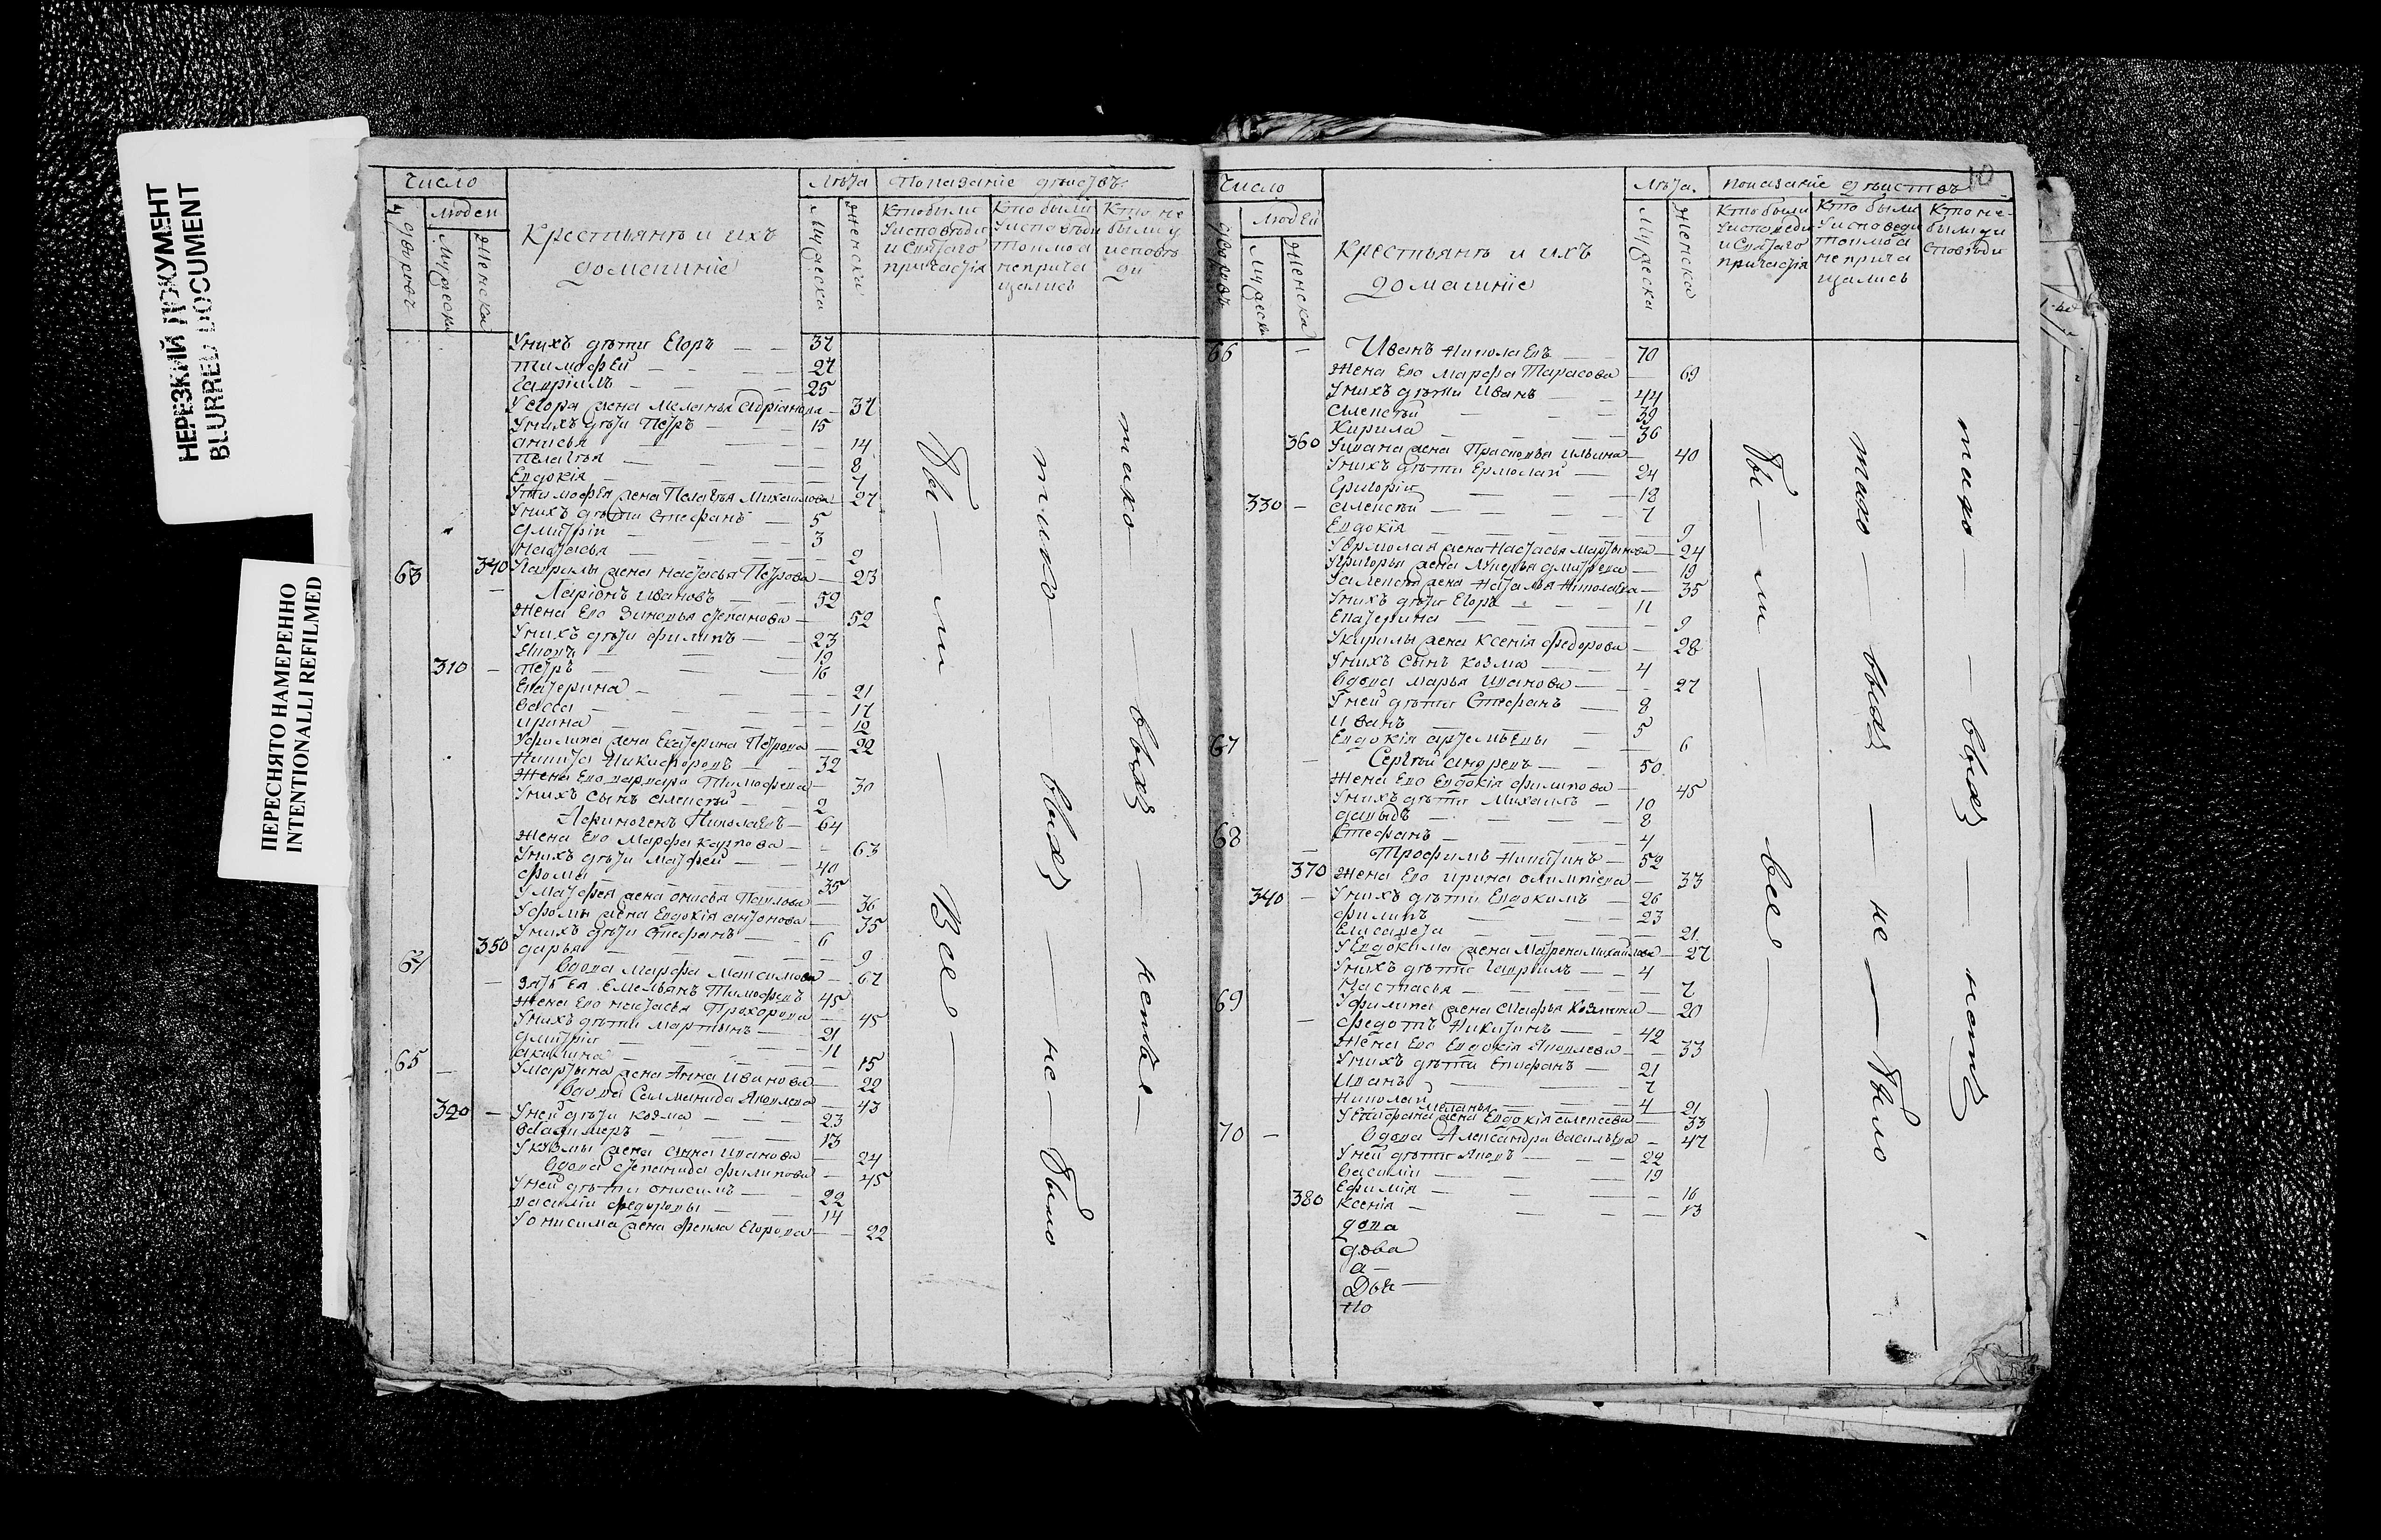 НЕРЕЗКИЙ ДОКУМЕНТ
BLURRED DOCUMENT
ПЕРЕСНЯТО НАМЕРЕННО
INTENTIONALLI REFILMED
Число
людей
дворовъ
Мужеска
Женска
Крестьянъ и ихъ
домашніе
Лѣта
Мужеска
Женска
Показаніе дѣйствъ
Кто были
У исповѣди
и Святаго
причастія
Кто были
У исповѣди
токмо а
неприча
щались
Кто не
были у
исповѣ
ди
У нихъ дѣти Егоръ — 37
Тимофей — 27
Гавріилъ — 25
У Егора жена Меланья Адріанова — 37
У нихъ дѣти Петръ — 15
Анисья — 14
Пелагея — 8
Евдокія — 7
У Тимофея жена Пелагея Михаилова 27
У нихъ дѣти Стефанъ — 5
Дмитрій — 3
Настасья — 2
340 Гаврилы жена Настасья Петрова — 23
63 — Ларіонъ Ивановъ — 52
Жена Его Зиновья Степанова — 52
У нихъ дѣти Филипъ — 23
Яковъ — 19
310 — Петръ — 16
Екатерина — 21
Васса — 17
Ирина — 12
У Филипа жена Екатерина Петрова — 22
Никита Никифоровъ — 32
Жена Его Варвара Тимофеева — 30
У нихъ сынъ Алексей — 2
Афиногенъ Николаевъ — 64
Жена Его Марфа Карпова — 63
У нихъ дѣти Матфей — 40
Фома — 35
У Матфея жена Анисья Павлова — 36
У Фомы жена Евдокія Антонова — 35
У нихъ дѣти Стефанъ — 6
350 Дарья — 9
64 — Вдова Марфа Максимова — 67
Зять Ея Емельянъ Тимофеевъ 45
Жена Его Настасья Прохорова 45
У нихъ дѣти Мартынъ — 21
Дмитрій — 11
Акилина — 15
65 — У Мартына жена Анна Иванова — 22
Вдова Саламанида Яковлева — 43
320 — У ней дѣти Козма — 23
Владимеръ — 13
У Козмы жена Анна Иванова — 24
Вдова Степанида Филипова — 45
У ней дѣти Онисимъ — 22
Василій Федоровы — 14
У Онисима жена Фекла Егорова — 22
Бы — ли — Все —
тако — выхъ — не — было
тако — выхъ —
10
Число
людей
дворовъ
Мужеска
Женска
Крестьянъ и ихъ
домашніе
Лѣта
Мужеска
Женска
показаніе дѣйствъ
Кто были
У исповеди
и Святаго
причастія
Кто были
У исповеди
токмо а
не прича
щались
Кто не
были у и
сповѣди
66 — Иванъ Николаевъ — 70
Жена Его Марфа Тарасова — 69
У нихъ дѣти Иванъ — 44
Алексей — 39
Кирила — 36
360 У Ивана жена Прасковья Ильина — 40
У нихъ дѣти Ермолай — 24
Григорій — 18
330 — Алексей — 7
Евдокія — 9
У Ермолая жена Настасья Мартынова — 24
У Григорья жена Лукерья Дмитрева — 19
У Алексея жена Наталья Николаева — 35
У нихъ дѣти Егоръ — 11
Екатерина — 9
У Кирилы жена Ксенія Федорова — 28
У нихъ сынъ Козма — 4
Вдова Марья Иванова — 27
У ней дѣти Стефанъ — 8
Иванъ — 5
Евдокія Артемьевы — 6
67 — Сергей Андревъ — 50
Жена Его Евдокія Филипова — 45
У нихъ дѣти Михаилъ — 10
Давыдъ — 8
Стефанъ — 4
68 — Трофимъ Никитинъ — 52
370 Жена Его Ирина Олимпіева — 33
340 — У нихъ дѣти Евдокимъ — 26
Филипъ — 23
Елисавета — 21
У Евдокима жена Матрена Михайлова — 27
У нихъ дѣти Гаврилъ — 4
Настасья — 2
У Филипа жена Козмина — 20
69 — Федотъ Никитинъ — 42
Жена Его Евдокія Яковлева — 33
У нихъ дѣти Епифанъ — 21
Иванъ — 7
Николай — 4
Меланья — 21
У Епифана жена Евдокія Алексеева — 33
70 — Вдова Александра Васильева — 47
У ней дѣти Яковъ — 22
Василій — 19
Ефимія — 16
380 Ксенія — 13
Бы — ли — все —
тако — выхъ — не — было
тако — выхъ — нетъ